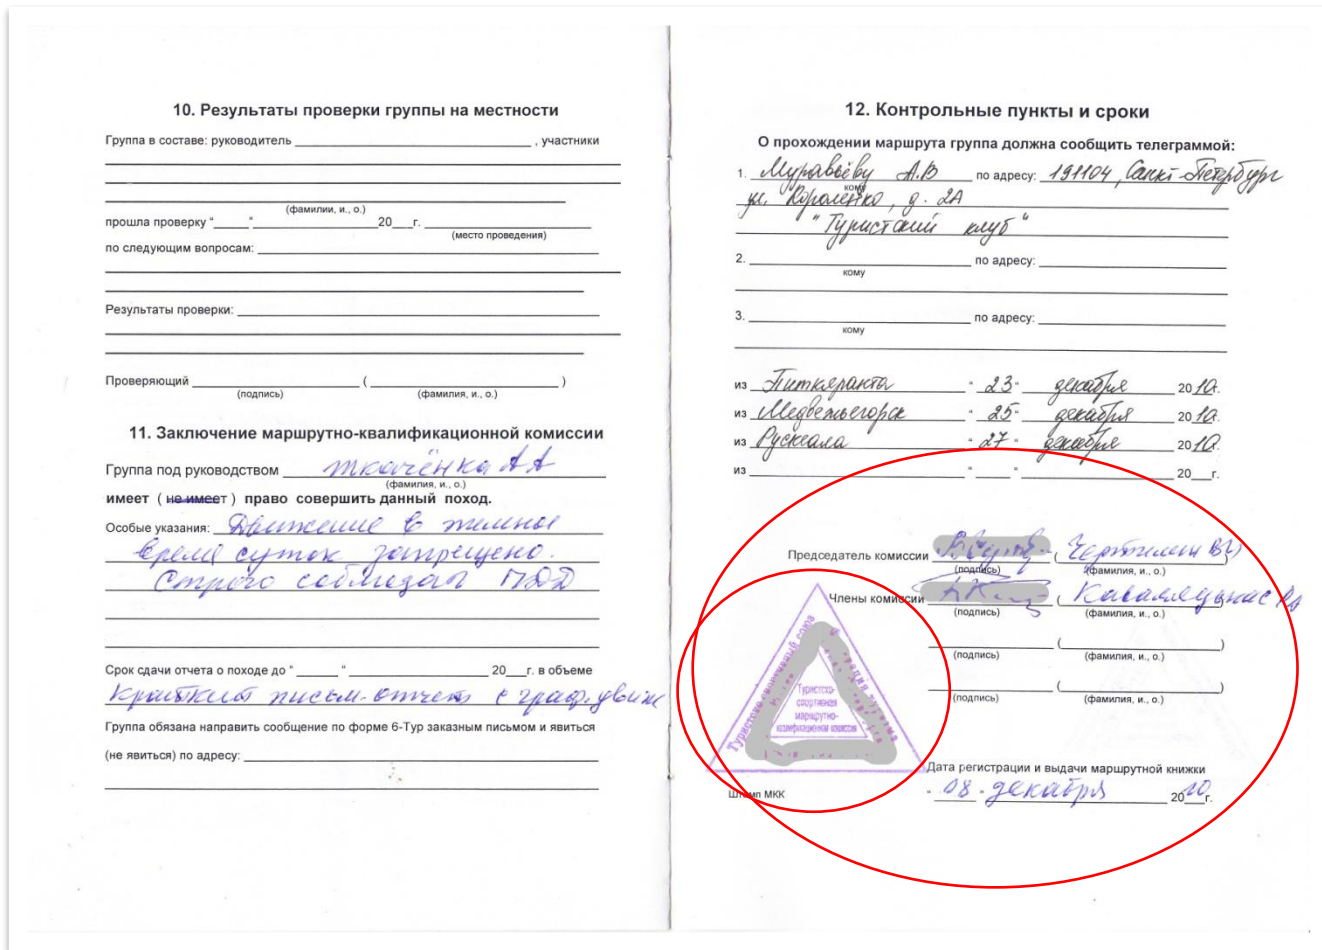 10. Результаты проверки группы на местности
Группа в составе: руководитель , участники
(фамилии, и., о.)
прошла проверку “ ” 20 г.
(место проведения)
по следующим вопросам:
Результаты проверки:
Проверяющий ( )
(подпись) (фамилия, и., о.)
11. Заключение маршрутно-квалификационной комиссии
Группа под руководством Ткачёнка А А
(фамилия, и., о.)
имеет ( не имеет ) право совершить данный поход.
Особые указания: Движение в темное
время суток запрещено.
Строго соблюдать ПДД
Срок сдачи отчета о походе до “ ” 20 г. в объеме
Краткий письм. отчет с граф.
Группа обязана направить сообщение по форме 6-Тур заказным письмом и явиться
(не явиться) по адресу:
12. Контрольные пункты и сроки
О прохождении маршрута группа должна сообщить телеграммой:
1. Муравьёву А.В по адресу: 191104, Санкт-Петербург
кому
ул. Короленко, д. 2А
"Туристский клуб"
2. по адресу:
кому
3. по адресу:
кому
из Питкяранта “ 23 ” декабря 20 10 г.
из Медвежьегорск “ 25 ” декабря 20 10 г.
из Рускеала “ 27 ” декабря 20 10 г.
из “ ” 20 г.
Председатель комиссии ( )
(подпись) (фамилия, и., о.)
Члены комиссии ( )
(подпись) (фамилия, и., о.)
( )
(подпись) (фамилия, и., о.)
( )
(подпись) (фамилия, и., о.)
Туристско-спортивный союз
туризма
Туристско-
спортивная
маршрутно-
квалификационная комиссия
Штамп МКК
Дата регистрации и выдачи маршрутной книжки
“ 08 ” декабря 20 10 г.